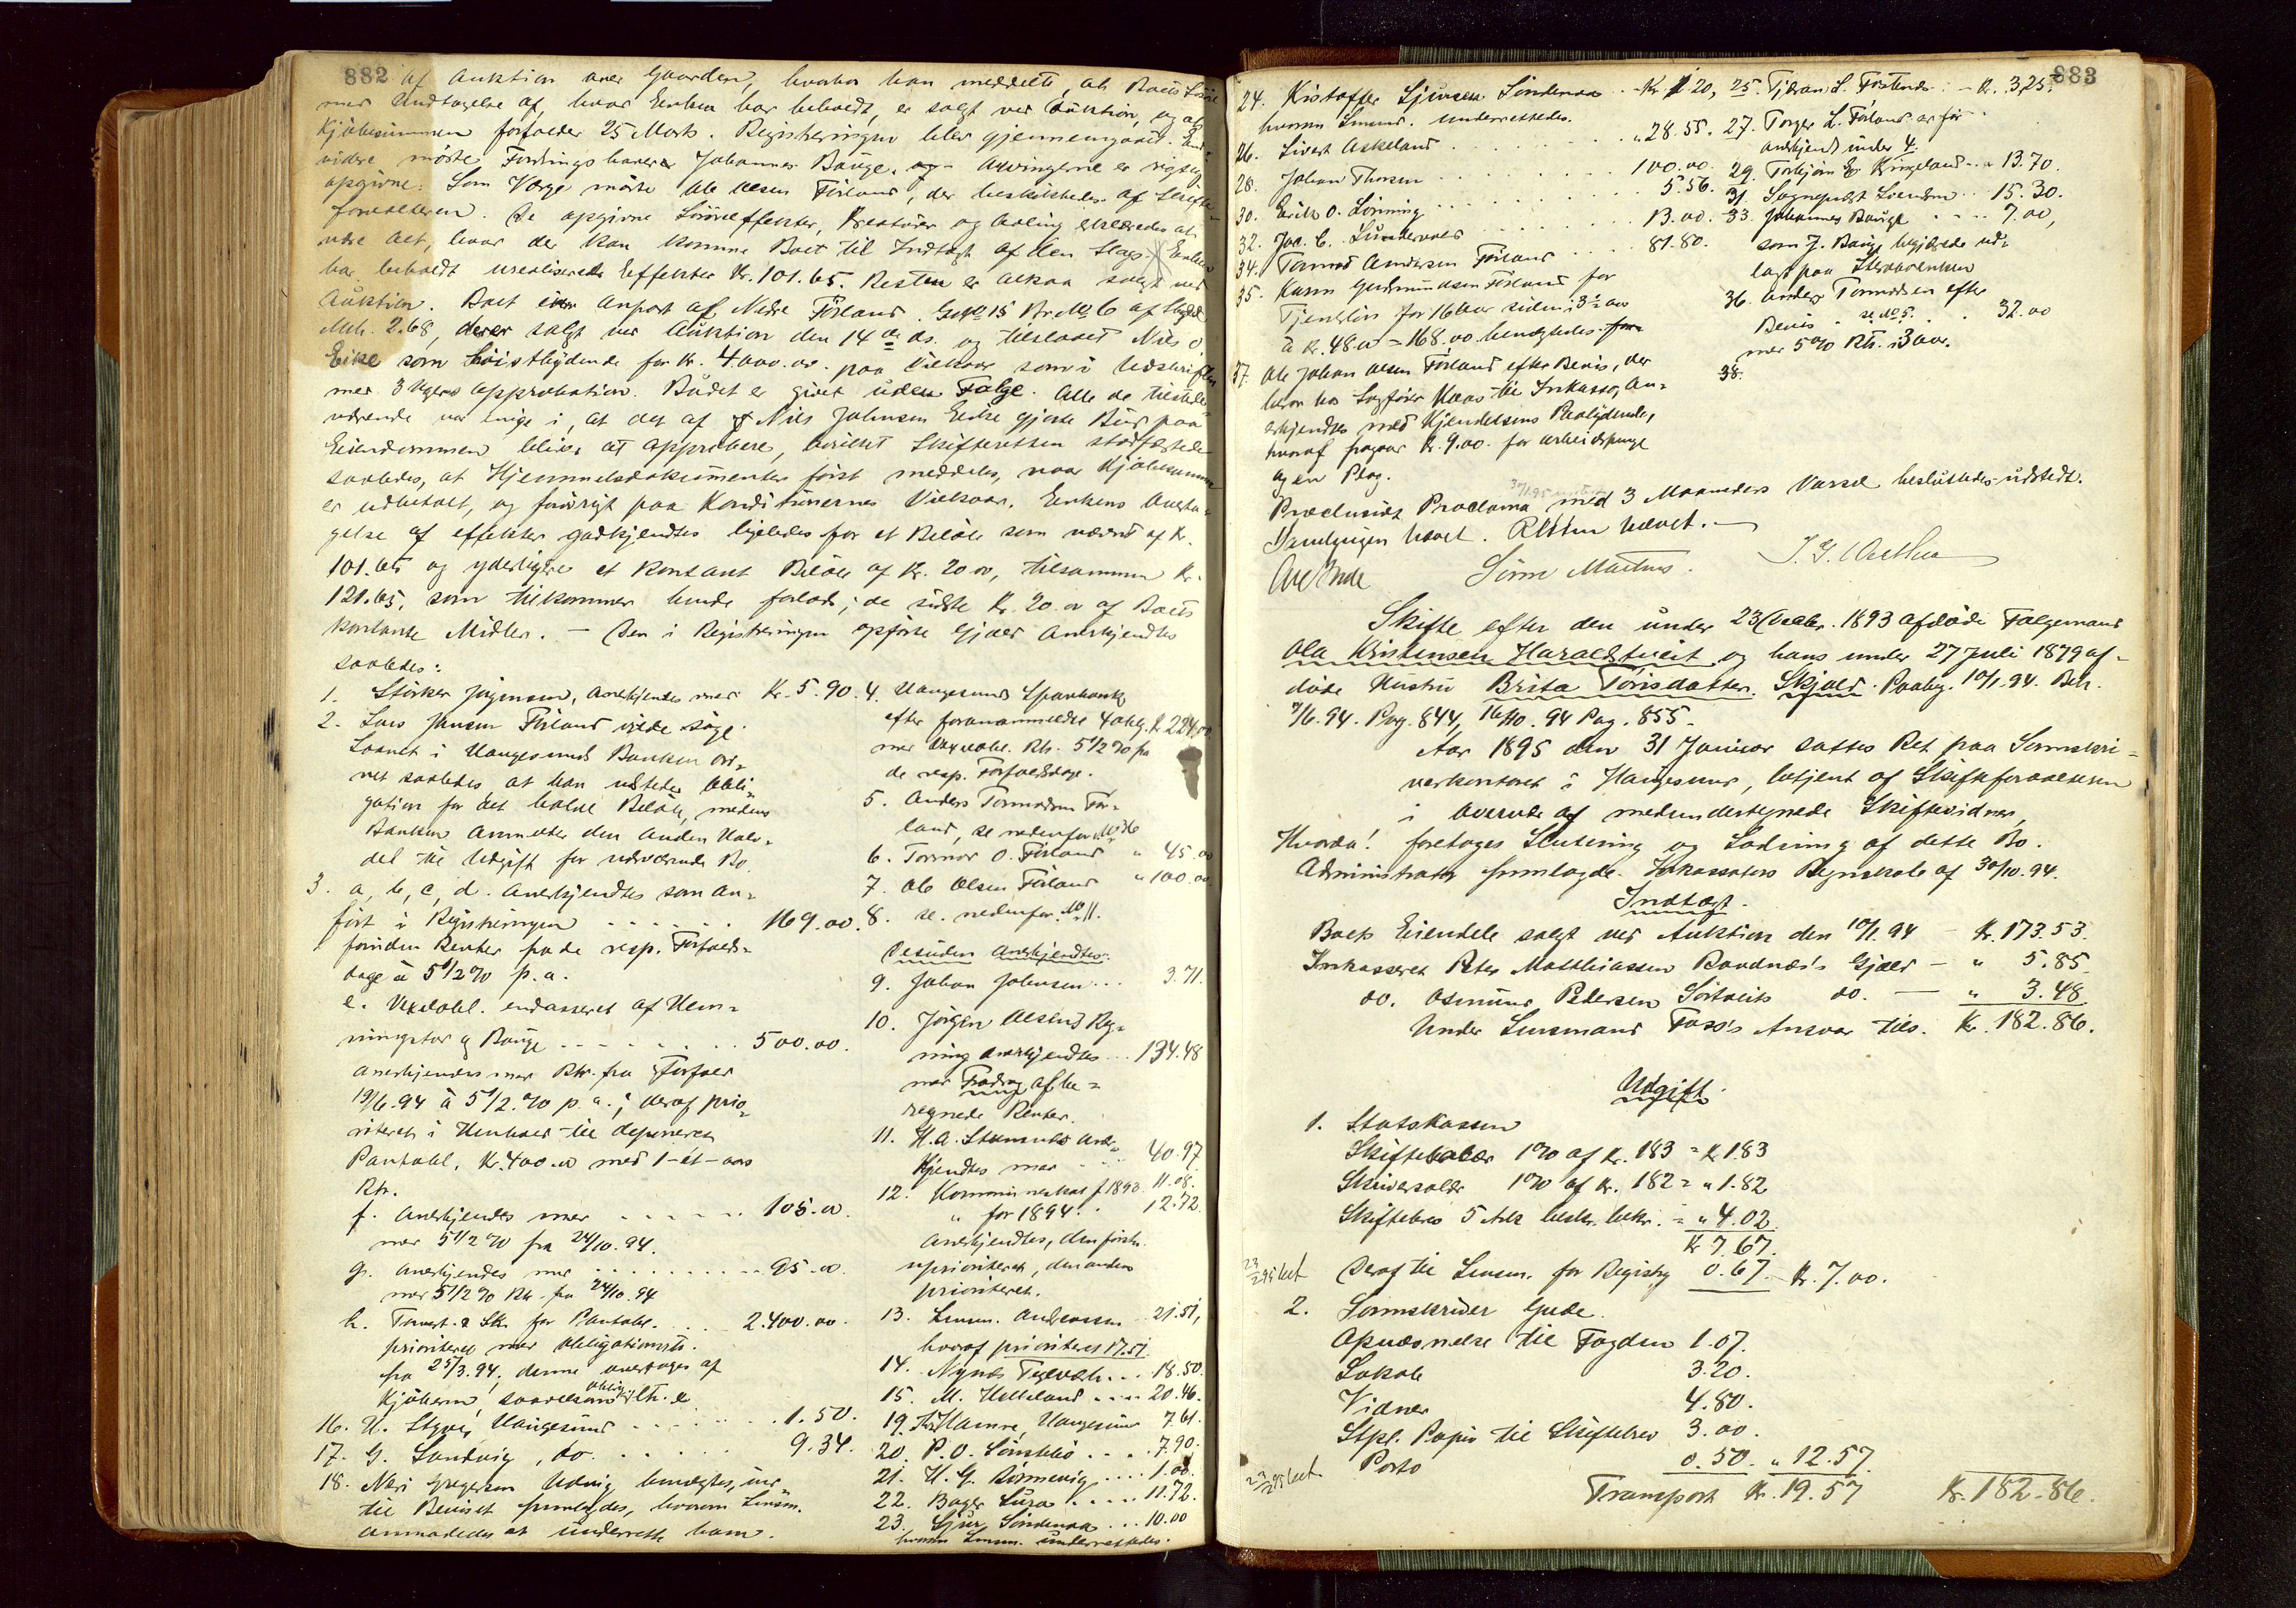 882
af Auktion over Gaarden, hvorhos han meddelte, at Boets Løsøre
med Undtagelse af, hvad Enken har beholdt, er solgt ved Auktion, og at
Kjøbesummen forfalder 25 Marts. Registreringen blev gjennemgaaet. End-
videre mødte Fordringshaver Johannes Bauge. Arvingerne er rigtig
opgivne. Som Værge mødte Ole Olsen Førland, der beskikkedes af Skifte-
forvalteren. De opgivne Løsøreffekter, Kreaturer og Avling erklæredes at
være alt, hvad der kan komme Boet til Indtægt af den Slags. Enken
har beholdt urealiserede Effekter Kr. 101.65. Resten er altsaa solgt ved
Auktion. Boet eier Anpart af Nedre Førland. Gno 15 Br. No 6 af Skyld
Mrk. 2.68, der er solgt ved Auktion den 14de ds. og tilslaaet Nils J
Eike som Høistbydende for Kr. 4000.00. paa Vilkaar som i Udskriften
med 3 Ugers Approbation. Budet er givet uden Følge. Alle de tilstede-
værende var enige i, at det af Nils Johnsen Eike gjorte Bud paa
Eiendommen bliver at approbere, hvilket Skifteretten stadfæstede
saaledes, at Hjemmelsdokumenter først meddeles, naar Kjøbesummen
er udbetalt, og forøvrigt paa Konditionernes Vilkaar. Enkens Overta-
gelse af Effekter godkjendtes ligeledes for et Beløb som nævnt af Kr.
101.65 og yderligere et kontant Beløb af Kr. 20.00, tilsammen Kr.
121.65, som tilkommer hende forlods; de sidste Kr. 20.00 af Boets
kontante Midler. — Den i Registreringen opførte Gjæld anerkjendtes
saaledes:
1. Størker Jørgensen, anerkjendes med Kr. 5.90.
2. Lars Jansen Førland vilde søge
Laanet i Haugesunds Banken ord-
net saaledes at han udsteder Obli-
gation for det halve Beløb, medens
Banken anmelder den anden Halv-
del til Udgift for nærværende Bo.
3. a, b, c, d. Anerkjendtes som an-
ført i Registreringen . . . . . . 169.00.
foruden Renter fra de resp. Forfalds-
dage à 5 1/2 % p. a.
e. Vexelobl. endosseret af Hen-
ningstad og Bauge . . . . . . . . 500.00.
anerkjendes med Rtr. fra Forfald
19/6.94 à 5 1/2 % p. a.; deraf prio-
riteret i Henhold til deponeret
Pantobl. Kr. 400.00 med 1-et-aars
Rtr.
f. Anerkjendes med . . . . . . 105.00.
med 5 1/2 % fra 24/10.94.
g. Anerkjendes med . . . . . . . 95.00.
med 5 1/2 % Rtr. fra 24/10.94
h. Torvest. & Sk. for Pantobl. . . . 2.400.00.
prioriteret med Obligationsrtr.
fra 25/3.94, denne overtages af
Kjøberen, saavelsom oblig. Ltr. e
16. H. Styve, Haugesund . . . . . . . 1.50.
17. G. Sandvig, do. . . . . . . 9.34.
18. Næri Gregersen Udvig benægtes, ind-
til Beviset fremlægges, hvorom Lensm.
anmodedes at underrette ham.
4. Haugesunds Sparebank
efter foranmeldte 4 Oblg. Kr. 224.00.
med Vexelobl. Rtr. 5 1/2 % fra
de resp. Forfaldsdage.
5. Anders Tormodsen Før-
land, se nedenfor No 36
6. Tormod O. Førland " 45.00
7. Ole Olsen Førland " 100.00
8. se nedenfor No 11.
Desuden anerkjendtes:
9. Johan Johnsen . . . 3.71.
10. Jørgen Olsens Reg-
ning anerkjendtes . . . 134.48
med Fradrag af be-
regnede Renter.
11. H. A. Stumules aner-
kjendtes med . . . 40.97
12. Kommuneskat f. 1893. 11.08.
" for 1894 . . 12.72.
anerkjendtes, den første
uprioriteret, den anden
prioriteret.
13. Lensm. Andersen . . 21.51,
hvoraf prioriteret 17.51.
14. Nymts Teglværk . . . 18.50.
15. M. Helleland . . . . 20.46.
19. Hamre, Haugesund 7.61.
20. P. O. Lønskbø . . . . 7.90.
21. H. G. Rømmevig . . . . 1.00.
22. Bager Lura . . . . 11.72.
23. Sjur Søndenaa . . . 10.00
hvorom Lensm. underrettedes.
883
24. Kristoffer Sjursen Søndenaa . . Kr. 1.20, 25. Tjeran S. Føstenes . . — Kr. 3,25.
hvorom Lensm. underrettedes.
26. Sivert Askeland . . . . . . . . " 28.55. 27. Torger L. Førland er før
anerkjendt under 4.
28. Johan Thorsen . . . . . . . . 100.00. 29. Torbjørn E. Kringeland . . " 13.70.
30. Erik O. Lønning . . . . . . . 5.56. 31. Sogneprest Svendsen . . . 15.30.
32. Jac. C. Sundervold . . . . . . 13.00. 33. Johannes Bauge . . . . 7.00,
34. Tormod Andersen Førland . . 81.80. som J. Bauge begjærede ud-
lagt paa Skoboenken
35. Karen Gudmundsen Førland for
Tjenstløn for 16 Aar siden i 3 1/2 Aar
à Kr. 48.00 = 168.00 benægtedes.
36. Anders Tormodsen efter
Bevis . se No 5. . . . 32.00
med 5 % Rtr. i 3 Aar.
37. Ole Johan Olsen Førland efter Bevis, der
beror hos Sagfører Haas til Inkasso, an-
erkjendtes med Kjendelsens Paalydende,
hvoraf fragaar Kr. 9.00 for Arbeidspenge
og en Plog.
38.
Præclusivt Proclama med 3 Maaneders Varsel besluttedes udstedt.
Samlingen hævet. Retten hævet. —
Ove Gude Sørine Martens. J. G. Wathne
Skifte efter den under 23 Decbr. 1893 afdøde Følgemand
Ola Kristensen Haraldstveit og hans under 27 Juli 1879 af-
døde Hustru Brita Tørisdatter. Skjold. Paabeg. 10/1.94. Beh.
7/6.94. Pag. 844, 16/10.94 Pag. 855.
Aar 1895 den 31 Januar sattes Ret paa Sorenskri-
verkontoret i Haugesund, betjent af Skifteforvalteren
i Overvær af medundertegnede Skiftevidner,
Hvorda! foretoges Slutning og Lodning af dette Bo.
Administrator fremlagde Inkassators Regnskab af 30/10.94.
Indtægt.
Boets Eiendele solgt ved Auktion den 10/1.94 — Kr. 173.53.
Inkasseret Peter Matthiassen Raadnæs's Gjæld — " 5.85.
do. Osmund Pedersen Sørtveits do. — " 3.48
Under Lensmand Foss's Ansvar tils. Kr. 182.86.
Udgift.
1. Statskassen
Skiftesalær 1 % af Kr. 183 = Kr. 1.83
Skriversalær 1 % af Kr. 182 = " 1.82
Skiftebrev 5 Ark beskr. bekr. = " 4.02
Kr. 7.67.
Deraf til Lensm. for Registrg 0.67 Kr. 7.00.
2. Sorenskriver Gude.
Avertering til Fogden 1.07.
Lokale 3.20.
Vidner 4.80.
Stpl. Papir til Skiftebrev 3.00.
Porto 0.50. " 12.57.
Transport Kr. 19.57 Kr. 182.86.